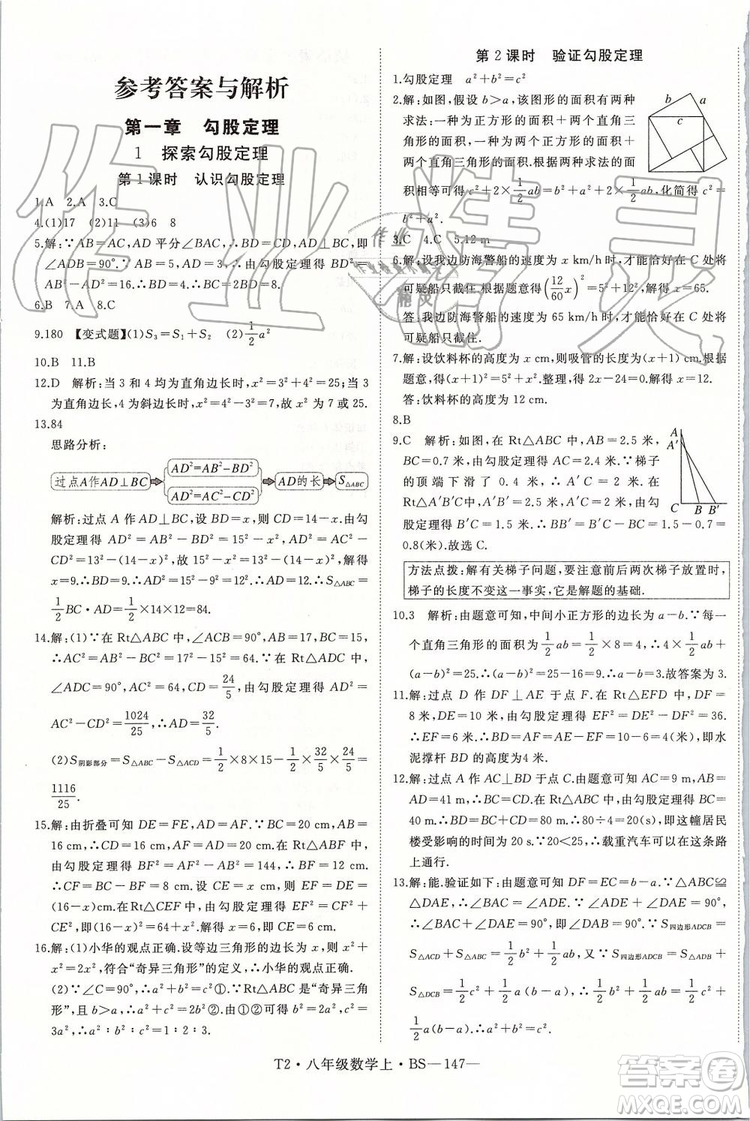 参考答案与解析
第一章 勾股定理
1 探索勾股定理
第1课时 认识勾股定理
1.A 2.A 3.C
4.(1)17 (2)11 (3)6 8
5.解:∵AB=AC,AD平分∠BAC,∴BD=DC.∵AD⊥BC,即
∠ADB=90°.∵
∴BC=2BD=8.
6.B 7.A 8.C
9.180 【变式题】(1)S₃=S₁+S₂ (2)1/2a²
10.B 11.B
12.D 解析:当3和4均为直角边长时,x²=3²+4²=25;当3为直
角边长,4为斜边长时,x²=4²-3²=7.综上所述,x²为7或25.
13.84
思路分析:
过点A作AD⊥BC
AD²=AB²-BD²
AD²=AC²-CD²
AD的长
S△ABC
解析:过点A作AD⊥BC,设BD=x,则CD=14-x.由勾
股定理得AD²=AB²-BD²=15²-x²,AD²=AC²-
CD²=13²-(14-x)²,∴15²-x²=13²-(14-x)²,解得
x=9.∴AD²=15²-9²=12².∴AD=12.∴S△ABC=
1/2BC·AD=1/2×14×12=84.
14.解:(1)∵在Rt△ABC中,∠ACB=90°,AB=17,BC=15,
∴由勾股定理得AC²=64,∴AC=8.∵在Rt△ADC中,
∠ADC=90°,AC²=64,CD=24/5,由勾股定理得AD²=
AC²-CD²=1024/25,∴AD=32/5.
(2)S阴影部分=S△ABC-S△ACD=1/2×8×15-1/2×24/5×32/5=
1116/25.
15.解:由折叠可知DE=FE,AD=AF.∵BC=20 cm,AB=
16 cm,∴CD=16 cm,AD=AF=20 cm.在Rt△ABF
中,由勾股定理得BF²=AF²-AB²=144,∴BF=12 cm.
∴CF=BC-BF=8 cm.设CE=x cm,则EF=DE=
(16-x)cm.在Rt△CEF中,由勾股定理得EF²=CF²+
CE²,即(16-x)²=8²+x²,解得x=6,即CE=6 cm.
16.解:(1)小华的观点正确.设等边三角形的边长为a,则a²+
a²=2a²,符合“奇异三角形”的定义,∴小华的观点正确.
(2)∵∠C=90°,∴a²+b²=c²①.∵Rt△ABC是“奇异三角
形”,且b>a,∴a²+c²=2b²②.由①②得b²=2a²,c²=
3a².∴a²∶b²∶c²=1∶2∶3.
第2课时 验证勾股定理
1.勾股定理 a²+b²=c²
2.解:如图,假设b>a,该图形的面积有两种
求法:一种为正方形的面积+两个直角三
角形的面积,即c²+2×1/2ab;另一种为两个
正方形的面积+两个直角三角形的面积,即
a²+b²+2×1/2ab.根据两种求法的面积相
等,有c²+2×1/2ab=a²+b²+2×1/2ab,化简得c²=
a²+b².
3.C 4.C 5.12 m
6.解:设我边防海警船的速度为x km/h时,才能恰好在C处将
可疑船只截住.根据题意得(12/60x)²=
答:我边防海警船的速度为65 km/h时,才能恰好在C处将
可疑船只截住.
7.解:设饮料杯的高度为x cm,则吸管的长度为(x+1)cm.根据
题意,得(x+1)²=x²+5²,解得x=12.
答:饮料杯的高度为12 cm.
8.B
9.C 解析:如图,在Rt△ABC中,AB=2.5米,
BC=0.7米,由勾股定理得AC=2.4米.∵梯子
的顶端下滑了0.4米,∴A′C=2米.∵在
Rt△A′B′C中,A′B′=2.5米,A′C=2米,由勾
股定理得B′C=1.5米,∴BB′=B′C-BC=1.5-0.7=
0.8(米).故选C.
方法点拨:解有关梯子问题,要注意前后两次梯子放置时,
梯子的长度不变这一事实,它是解题的基础.
10.3 解析:由题意可知,中间小正方形的边长为a-b.∵每一
个直角三角形的面积为1/2ab=1/2×8=4,∴4×1/2ab+
(a-b)²=25.∴(a-b)²=25-16=9.∴a-b=3.故答案为3.
11.解:过点D作DF⊥AE于点F.在Rt△EFD中,DF=
8米,DE=10米,由勾股定理得EF²=DE²-DF²=36.
∴EF=6米.∴AF=AE-EF=10-6=4(米),即水
泥撑杆BD的高度为4米.
12.解:过点A作AC⊥DE于点C.由题意可知AC=9 m,AB=
AD=41 m.由勾股定理得CD=BC=40 m,则BD=
80 m.∵汽车的速度为4 m/s,∴80÷4=20(s),即这幢居民
楼受影响的时间为20 s.∵20<25,∴载重汽车可以在这条路
上通行.
13.解:能.验证如下:由题意可知DF=EC=b-a.∵△BAC≌
△DAE,∴∠BAC=∠DAE.∵∠DAE+∠DAF=90°,
∴∠BAC+∠DAF=90°,即∠BAD=90°,∴S四边形ADCB=
S△ACD+S△ABC=1/2b²+1/2ab.又∵S四边形ADCB=S△ADB+
S△DCB=1/2c²+1/2a(b-a),∴1/2b²+1/2ab=1/2c²+1/2a(b-
a).∴a²+b²=c².
T2·八年级数学上·BS—147—
作业精灵
答案圈